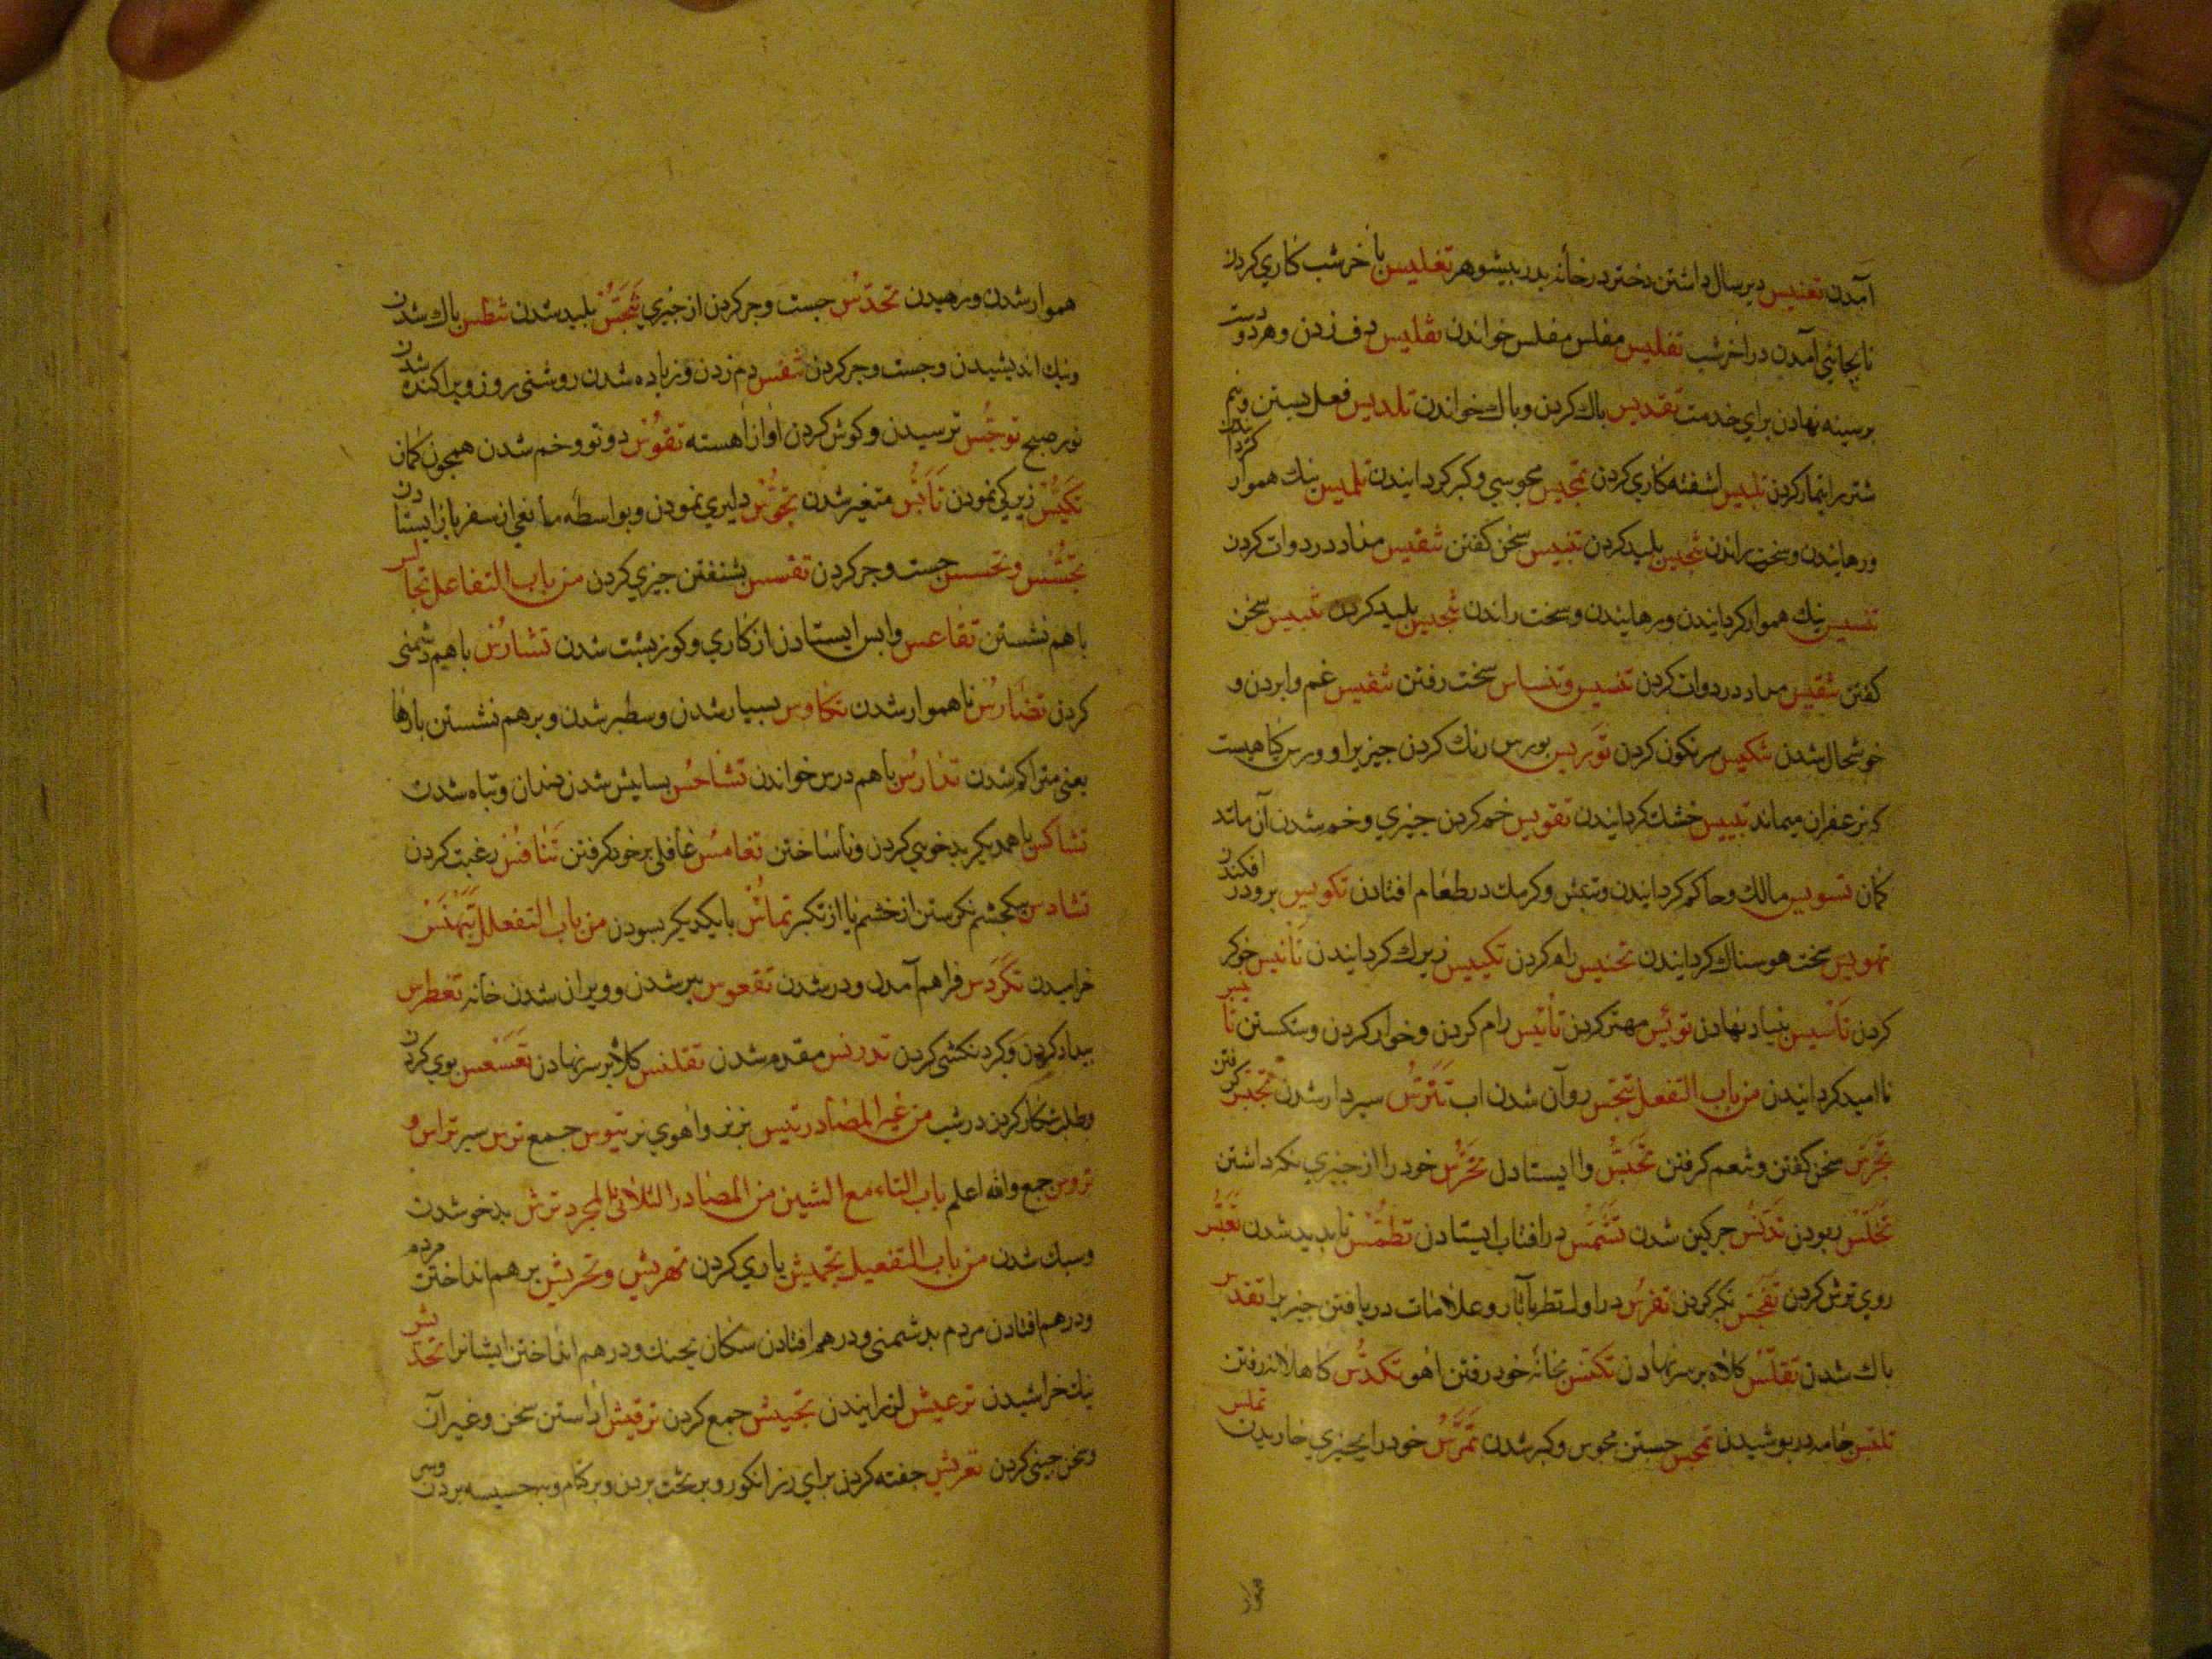 آمدن تعنیس دیر سال داشتن دختر در خانه پدر بیشوهر تغلیس بآخر شب کاری کردن
تا بجائی آمدن در آخر شب تفلیس مفلس مفلس خواندن تقلیس دف زدن و هر دو دست
بر سینه نهادن برای خدمت تقدیس باك کردن و باك خواندن تلدیس فعل بستن
شتر را تیمار کردن تلبیس آشفته کاری کردن تمجیس مجوسی و کبر کردانیدن تملیس نیك هموار
ورهانیدن و سخت راندن تنجیس بلید کردن تنبیس سخن کفتن تنقیس مداد در دوات کردن
تنسیس نیك هموار کردانیدن ورهانیدن و سخت راندن تنجیس بلید کردن تنبیس سخن
کفتن تنقیس مداد در دوات کردن تنسیس وتنساس سخت رفتن تنفیس غم وابردن و
خوشحال شدن تنکیس سرنکون کردن توریس بورس رنك کردن جیزیرا و ورس کیاهیست
که بزعفران میماند تیبیس خشك کردانیدن تقویس خم کردن جیزی و خم شدن آن مانند
کمان تسویس مالك و حاکم کردانیدن و شبش و کرمك در طعام افتادن تکویس برو در افکندن
تهویس سخت هوسناك کردانیدن تخنیس رام کردن تکییس زیرك کردانیدن تأنیس خوکر
کردن تأسیس بنیاد نهادن تویس مهتر کردن تأییس رام کردن و خوار کردن و شکستن
نا امید کردانیدن من باب التفعل تبجس روان شدن اب تترس سبردار شدن تجبس
تجرس سخن کفتن و نعم کرفتن تحبس وا ایستادن تحرس خود را از جیزی نکه داشتن
تخلس ربودن تدنس جرکین شدن تشمس در افتاب ایستادن تطمس نابدید شدن تعبس
روی ترش کردن تفجس تکبر کردن تفرس در اول نظر بآثار و علامات دریافتن جیزیرا تقدس
باك شدن تقلس کلاه بر سر نهادن تکنس بخانه خود رفتن اهو تکدس کاهلانه رفتن
تلبس جامه در بوشیدن تمجس جستن مجوس و کبر شدن تمرس خود را بجیزی خاریدن تملس
هموار شدن ورهیدن تحدس جست و جر کردن از جیزی تنجس بلید شدن تنطس باك شدن
ونیك اندیشیدن و جست و جر کردن تنفس دم زدن و زیاده شدن روشنی روز و براکنده شدن
نور صبح توجس ترسیدن و کوش کردن اواز اهسته تقوس دوتو و خم شدن همجون کمان
تکیس زیرکی نمودن تأبس متغیر شدن تجوس دلیری نمودن و بواسطه مانعی از سفر باز ایستادن
تجسس وتحسس جست و جر کردن تقسس بشنفتن جیزی کردن من باب التفاعل تجالس
باهم نشستن تقاعس وابس ایستادن از کاری و کوز بشت شدن تشارس باهم دشمنی
کردن تضارس ناهموار شدن تکاوس بسیار شدن وسطبر شدن و بر هم نشستن بارها
یعنی متراکم شدن تدارس باهم درس خواندن تشاخس بسایش شدن دندان و تباه شدن
تشاکس با همدیکر بدخویی کردن و ناساختن تغامس غافلی بر خود کرفتن تنافس رغبت کردن
تشاوس بیکجشم نکرستن از خشم یا از تکبر تماس بایکدیکر بسودن من باب التفعلل تبهنس
خرامیدن تکردس فراهم آمدن و در شدن تقعوس بیر شدن و ویران شدن خانه تغطرس
بیداد کردن و کردنکشی کردن تدربس مقدم شدن تقلنس کلاه بر سر نهادن تعسعس بوی کردن
وطلب شکار کردن در شب من غیر المصادر تیس بز نر و اهوی نر تیوس جمع ترس سبر تراس و
تروس جمع والله اعلم باب التاء مع الشین من المصادر الثلاثی المجرد ترش بدخو شدن
وسبك شدن من باب التفعیل تجمیش بازی کردن تهریش وتحریش بر هم انداختن مردم
و درهم افتادن مردم بدشمنی و درهم افتادن سکان بجنك و درهم انداختن ایشانرا تخدیش
نیك خراشیدن ترعیش لرزانیدن تجییش جمع کردن ترقیش اراستن سخن و غیر آن
وسخن جینی کردن تعریش جفته کردن برای رز انکور و بر تخت بردن و بر کام